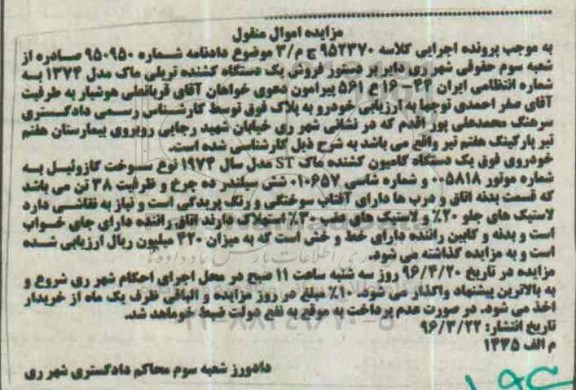 مزایده اموال منقول
به موجب پرونده اجرایی کلاسه ۹۵۲۳۷۰ ج م/۳ موضوع دادنامه شماره ۹۵۰۹۵۰ صادره از
شعبه سوم حقوقی شهر ری دایر بر دستور فروش یک دستگاه کشنده تریلی ماک مدل ۱۳۷۴ به
شماره انتظامی ایران ۴۲-۱۶ ع ۵۶۱ پیرامون دعوی خواهان آقای قربانعلی هوشیار به طرفیت
آقای صفر احمدی توجها به ارزیابی خودرو به پلاک فوق توسط کارشناس رسمی دادگستری
سرهنگ محمدعلی پور اقدم که در نشانی شهر ری خیابان شهید رجایی روبروی بیمارستان هفتم
تیر پارکینگ هفتم تیر واقع می باشد به شرح ذیل کارشناسی شده است.
خودروی فوق یک دستگاه کامیون کشنده ماک ST مدل سال ۱۹۷۴ نوع سوخت گازوئیل به
شماره موتور ۰۰۵۸۱۸ و شماره شاسی ۰۱۰۶۵۷ شش سیلندر ده چرخ و ظرفیت ۳۸ تن می باشد
که قسمت بدنه اتاق و درب ها دارای آفتاب سوختگی و رنگ پریدگی است و نیاز به نقاشی دارد
لاستیک های جلو ۲۰٪ و لاستیک های عقب ۳۰٪ استهلاک دارند اتاق راننده دارای جای خواب
است و بدنه و کابین راننده دارای خط و خش است که به میزان ۳۲۰ میلیون ریال ارزیابی شده
است و به مزایده گذاشته می شود.
مزایده در تاریخ ۹۶/۴/۲۰ روز سه شنبه ساعت ۱۱ صبح در محل اجرای احکام شهر ری شروع و
به بالاترین پیشنهاد واگذار می شود. ۱۰٪ مبلغ در روز مزایده و الباقی ظرف یک ماه از خریدار
اخذ می شود. در صورت عدم پرداخت به موقع به نفع دولت ضبط خواهد شد.
تاریخ انتشار: ۹۶/۳/۲۲
م الف ۱۴۳۵
دادورز شعبه سوم محاکم دادگستری شهر ری